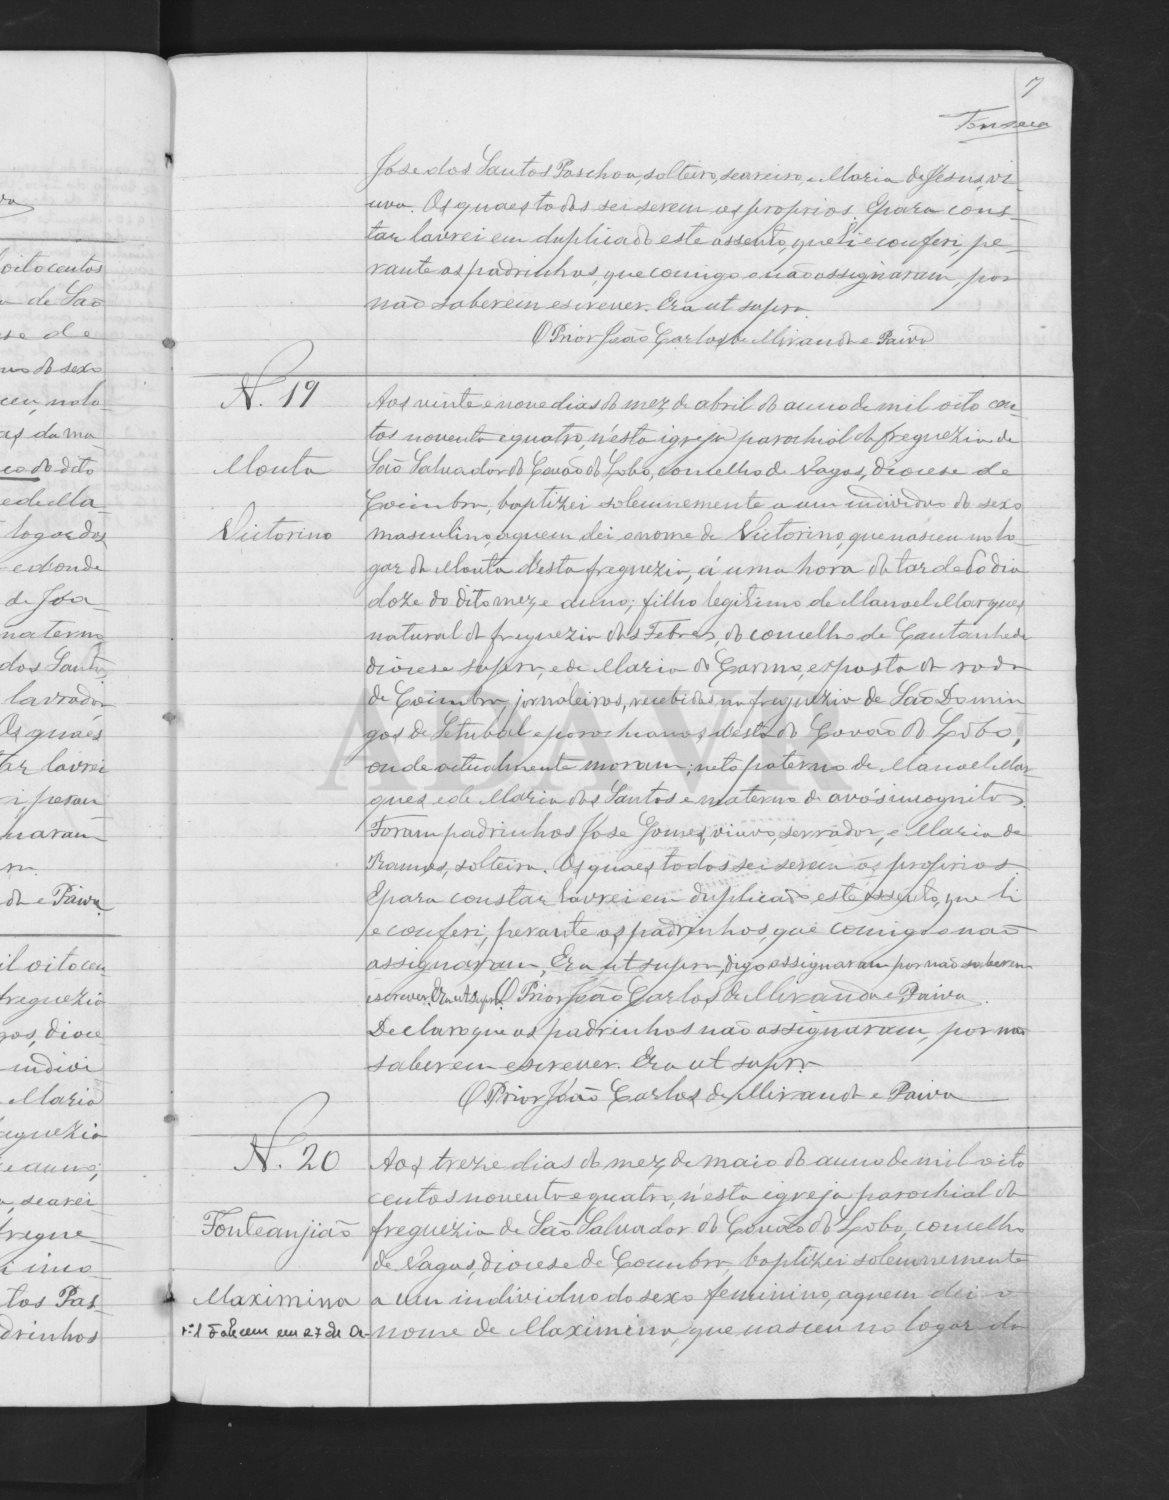 7
Fonseca
José dos Santos Paschoa, solteiro, seareiro, e Maria de Jesus, vi-
uva. Os quaes todos sei serem os proprios. E para cons-
tar lavrei em duplicado este assento, que li e conferi, pe-
rante os padrinhos, que comigo o não assignaram, por
não saberem escrever. Era ut supra.
O Prior João Carlos de Miranda e Paiva
N. 19
Monta
Victorino
Aos vinte e nove dias do mez de abril do anno de mil oito cen-
tos noventa e quatro, n'esta igreja parochial da freguezia de
São Salvador do Covão do Lobo, concelho de Vagos, diocese de
Coimbra, baptizei solemnemente a um individuo do sexo
masculino, a quem dei o nome de Victorino, que nasceu no lo-
gar da Monta d'esta freguezia, á uma hora da tarde do dia
doze do dito mez e anno; filho legitimo de Manoel Marques
natural da freguezia das Febres, do concelho de Cantanhede
diocese supra, e de Maria do Carmo, exposta da roda
de Coimbra, jornaleiros, recebidos na freguezia de São Domin-
gos de Setubal e parochianos d'esta do Covão do Lobo,
onde actualmente moram; neto paterno de Manoel Mar-
ques, e de Maria dos Santos e materno de avós incognitos.
Foram padrinhos José Gomes, viuvo, serrador, e Maria de
Ramos, solteira. Os quaes todos sei serem os proprios
E para constar lavrei em duplicado este assento, que li
e conferi, perante os padrinhos, que comigo o não
assignaram, Era ut supra, digo assignaram por não saberem
escrever. Era ut supra. O Prior João Carlos de Miranda e Paiva.
Declaro que os padrinhos não assignaram, por não
saberem escrever. Era ut supra
O Prior João Carlos de Miranda e Paiva
N. 20
Fonteanjião
Maximina
Aos treze dias do mez de maio do anno de mil oito
centos noventa e quatro, n'esta igreja parochial da
freguezia de São Salvador do Covão do Lobo, concelho
de Vagos, diocese de Coimbra, baptizei solemnemente
a um individuo do sexo feminino, a quem dei o
nome de Maximina, que nasceu no logar da